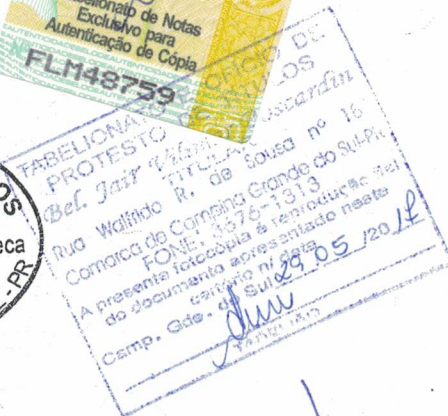 Tabelionato de Notas
Exclusivo para
Autenticação de Cópia
FLM48759
OFÍCIO DE
PROTESTO DE TÍTULOS
Bel. Jair
TITULAR
Rua Walfrido R. de Sousa nº 16
Comarca de Campina Grande do Sul-PR
FONE: 3676-1313
A presente fotocópia é reprodução fiel
do documento apresentado neste
cartório n/ data
Camp. Gde. do Sul 29 05 /20 17
OS
eca
-PR